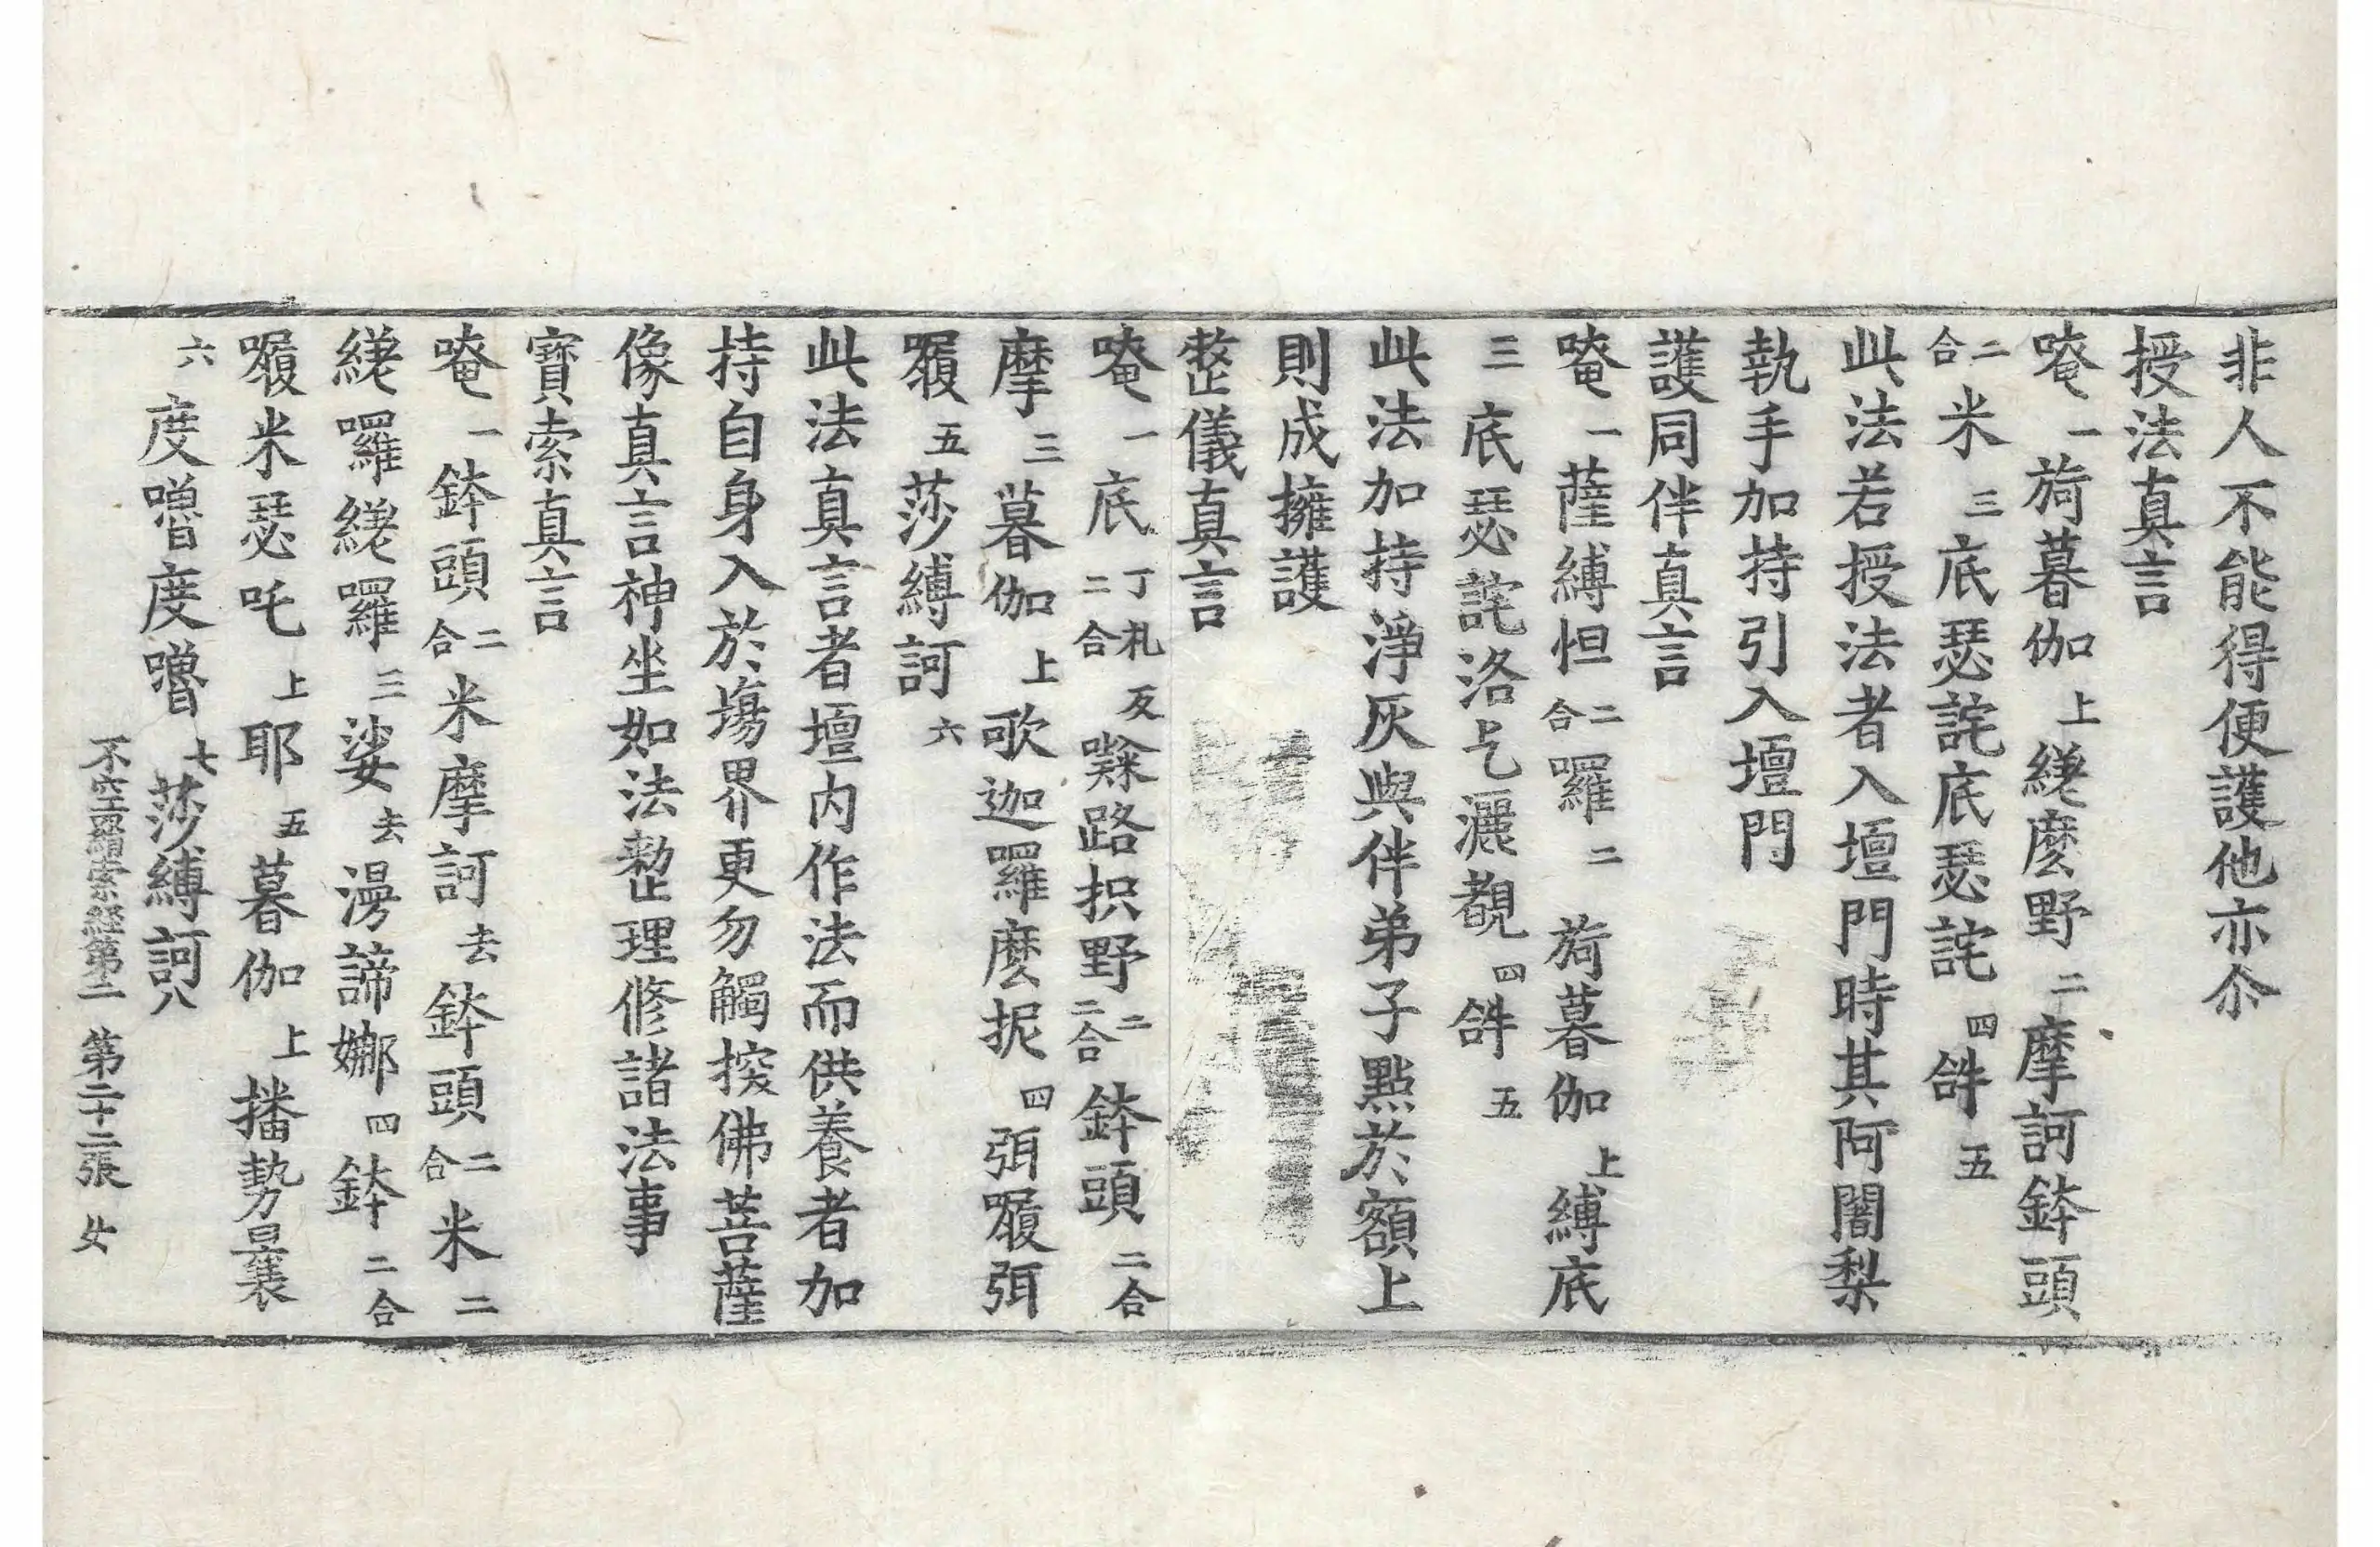 非人不能得便護他亦尒
授法真言
唵一旖暮伽上縒麼野二摩訶鉢頭
二合米三底瑟詫底瑟詫四𤙖五
此法若授法者入壇門時其阿闍梨
執手加持引入壇門
護同伴真言
唵一薩縛怛二合羅二旖暮伽上縛底
三底瑟詫洛乞灑覩四𤙖五
此法加持淨灰與伴弟子點於額上
則成擁護
整儀真言
唵一底丁札反二合路抧野二二合鉢頭二合
摩三暮伽上歌迦羅麼抳四弭㘑弭
㘑五莎縛訶六
此法真言者壇内作法而供養者加
持自身入於塲界更勿觸揬佛菩薩
像真言神坐如法整理修諸法事
寶索真言
唵一鉢頭二合米摩訶去鉢頭二合米二
縒囉縒囉三娑去漫諦娜四鉢二合
㘑米瑟吒上耶五暮伽上播勢曩
六度嚕度嚕七莎縛訶八
不空羂索經第二 第二十二張 女